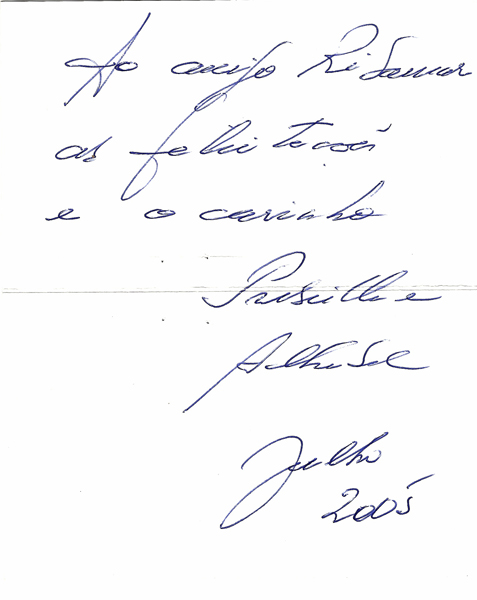 Ao amigo Risomar
as felicitações
e o carinho
Priscilla e
Julho
2005